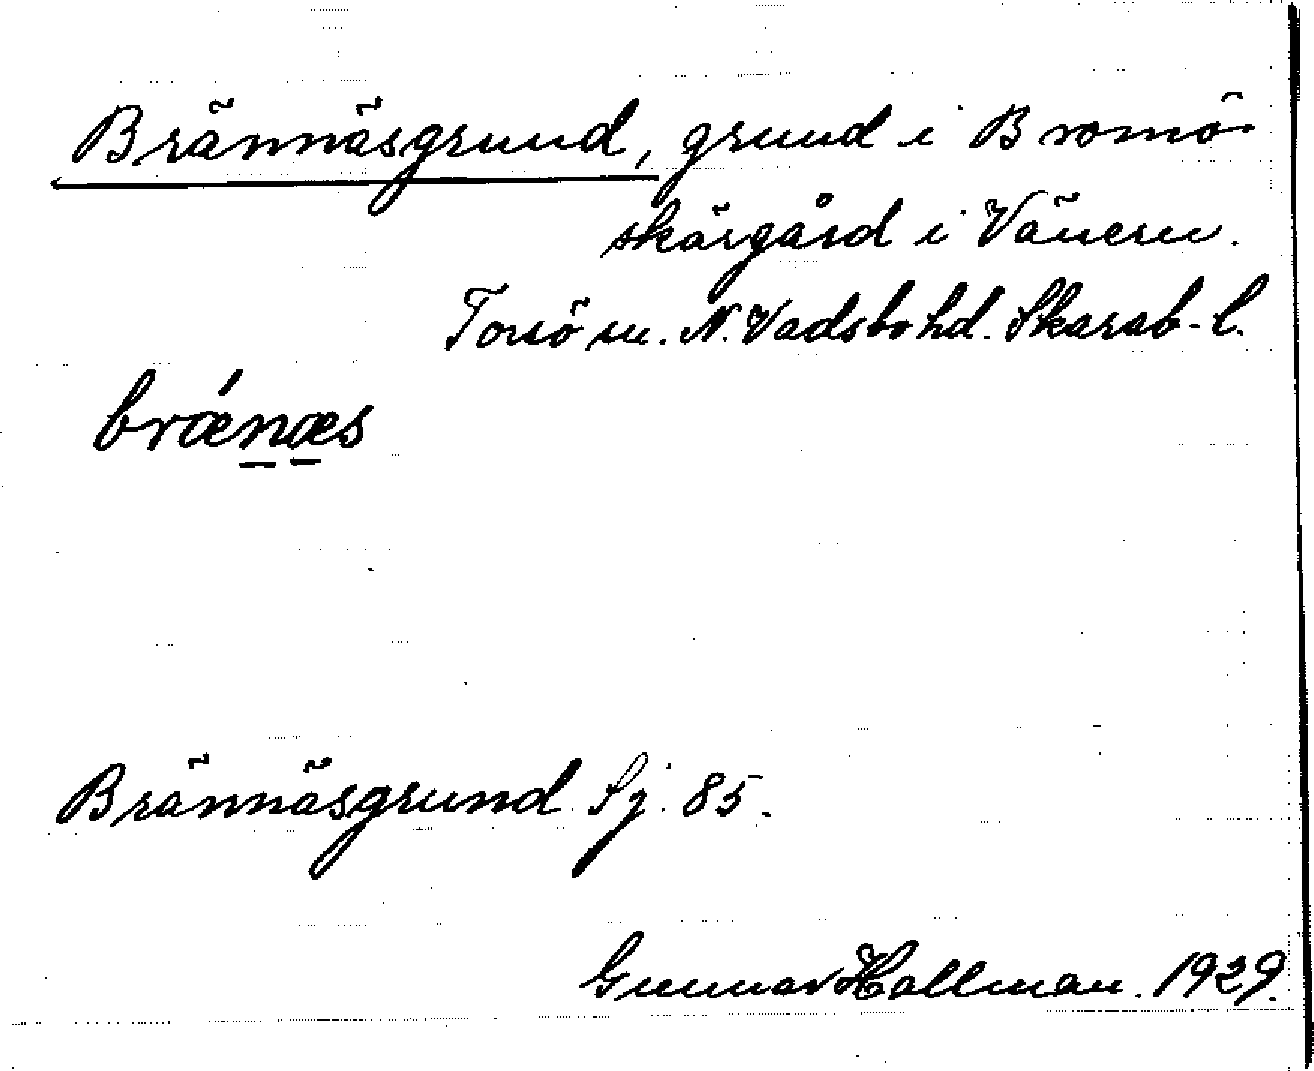 Brännäsgrund, grund i Bromö
skärgård i Vänern.
Torsö sn. N. Vadsbo hd. Skarab-l.
brǽnæs
Brännäsgrund Sj. 85.
Gunnar Hallman. 1929.